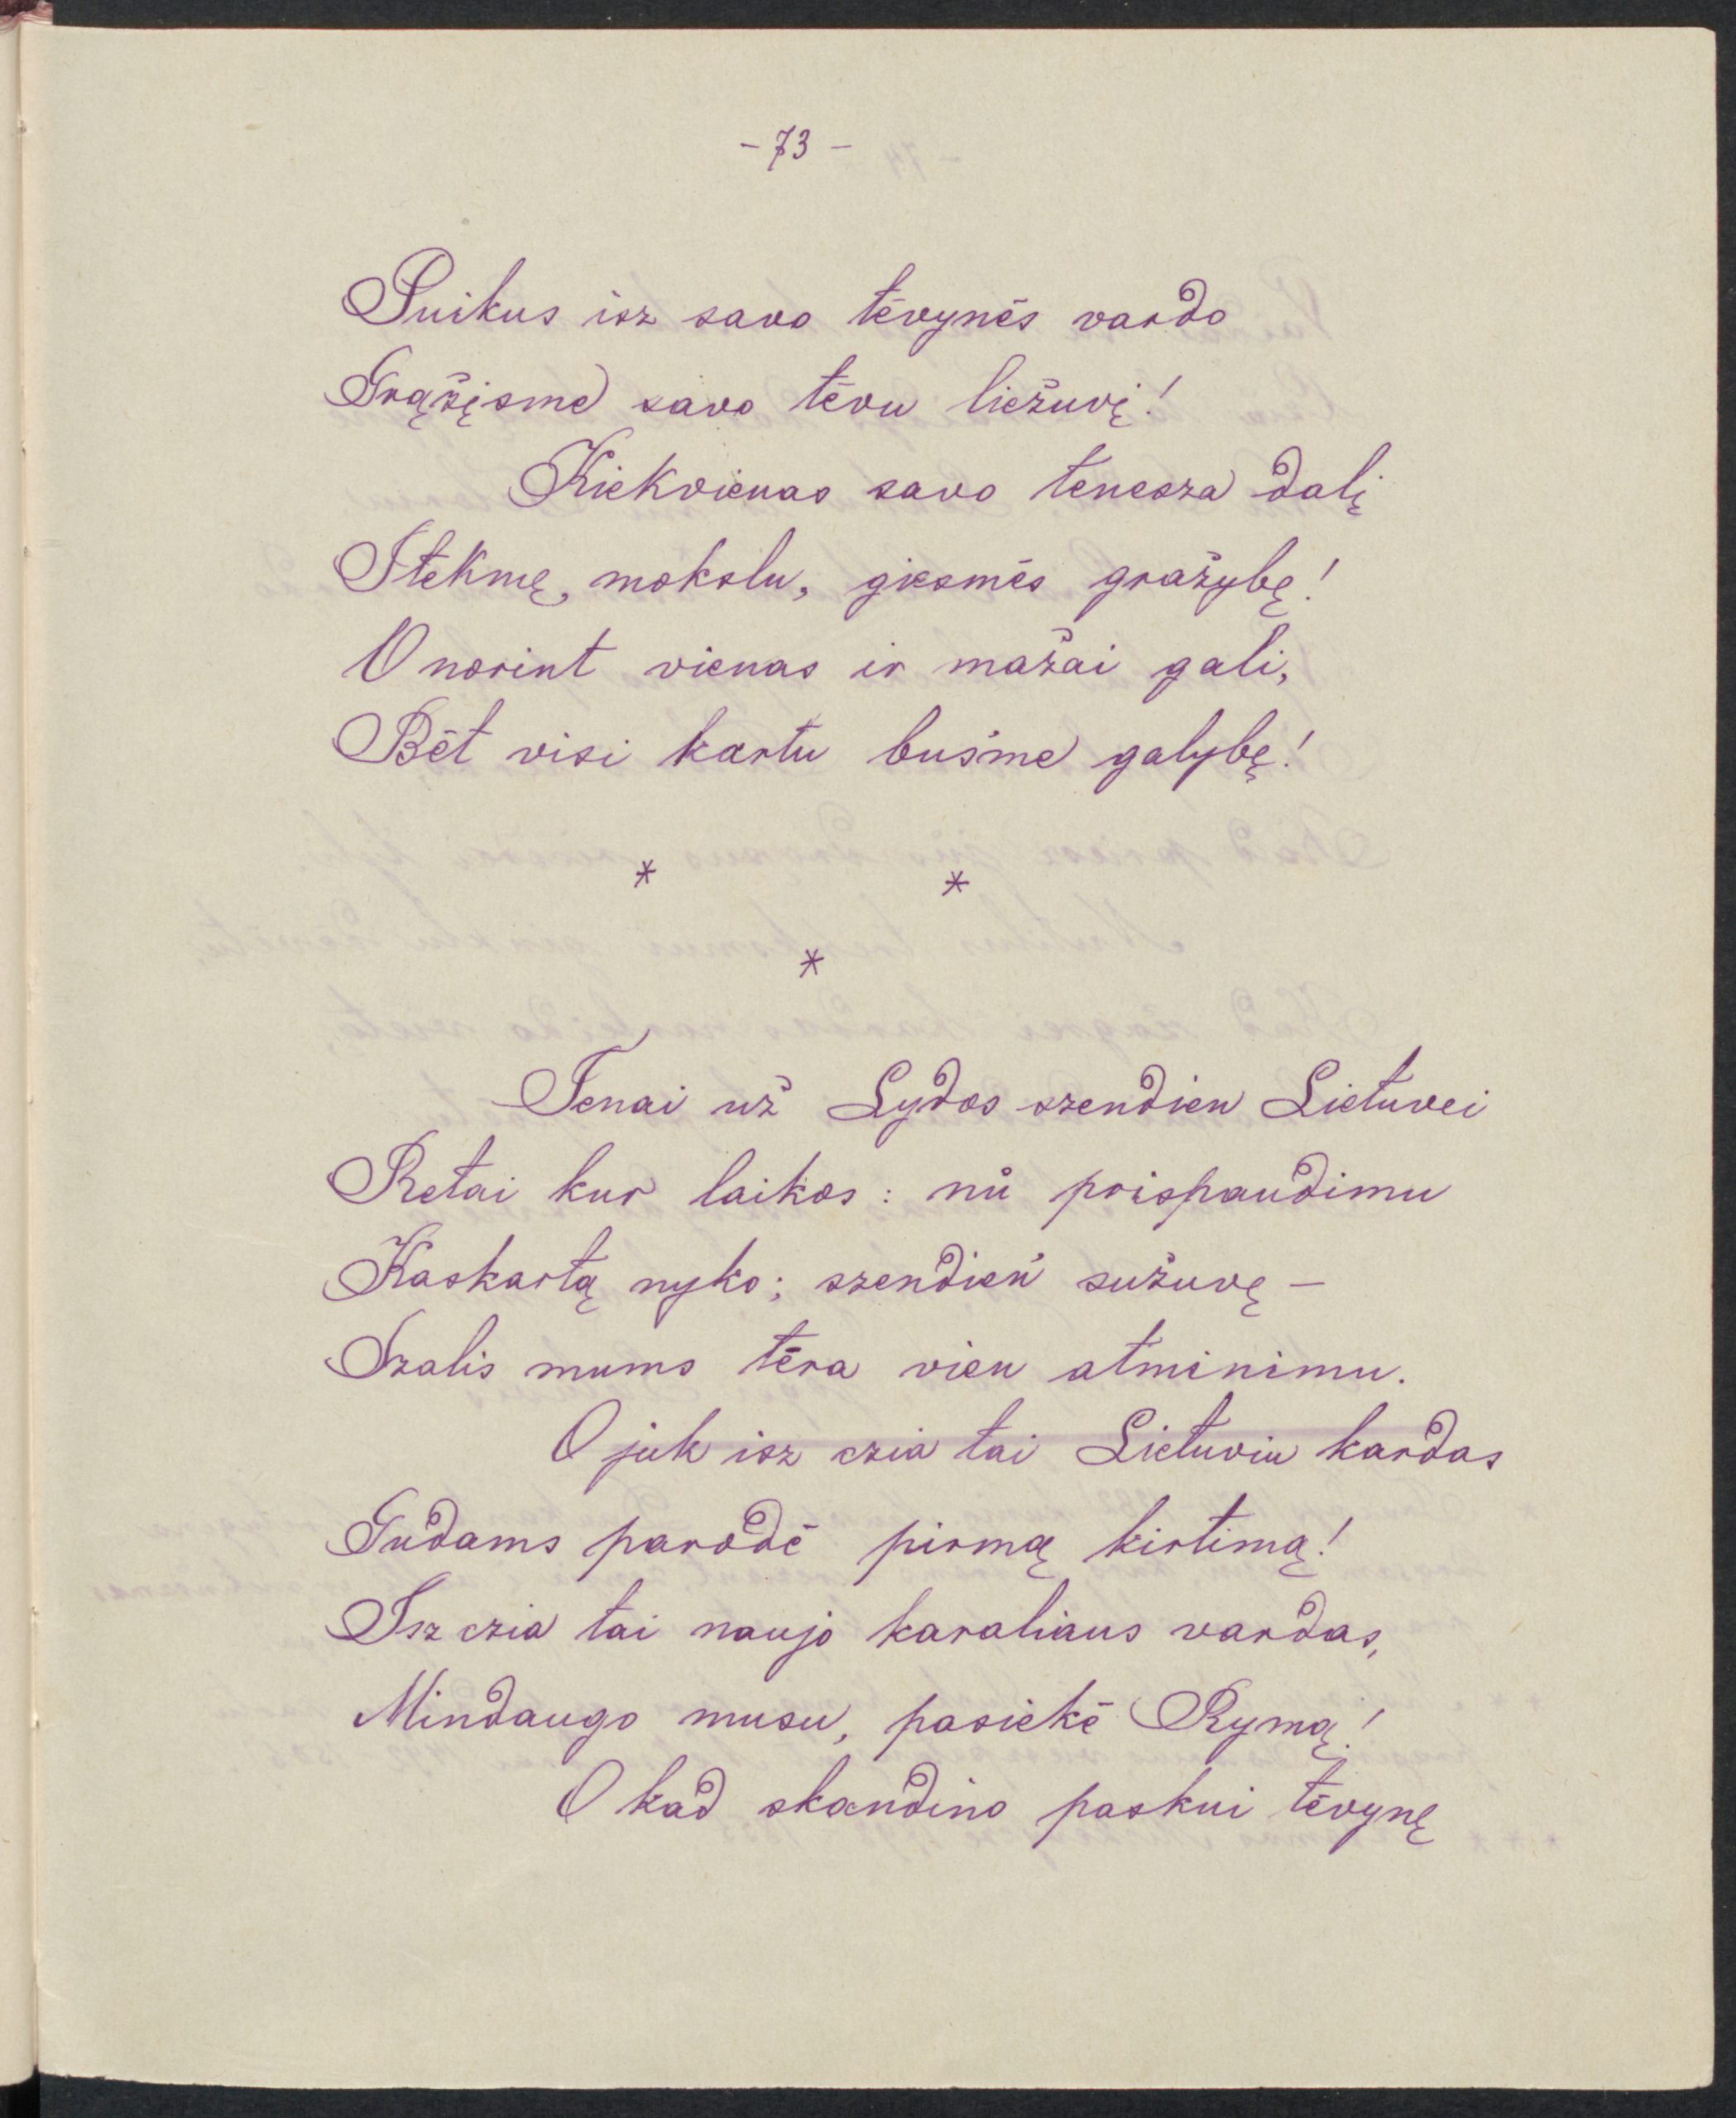 - 73 -
Puikus isz savo tėvynės vardo
Grąžįsme savo tėvu liežuvį!
Kiekvienas savo tenesza dalį
Itekmę, mokslu, giesmės gražybę!
O norint vienas ir mažai gali,
Bėt visi kartu buśme galybę!
* *
*
Tenai už Lydos szendien Lietuvei
Retai kur laikos: nů prispaudimu
Kaskartą nyko; szendień sužuvę –
Szalis mums tėra vien atminimu.
O juk isz czia tai Lietuviu kardas
Gudams parodė pirmą kirtimą!
Isz czia tai naujo karaliaus vardas,
Mindaugo musu, pasiekė Rymą!
O kad skandino paskui tėvynę